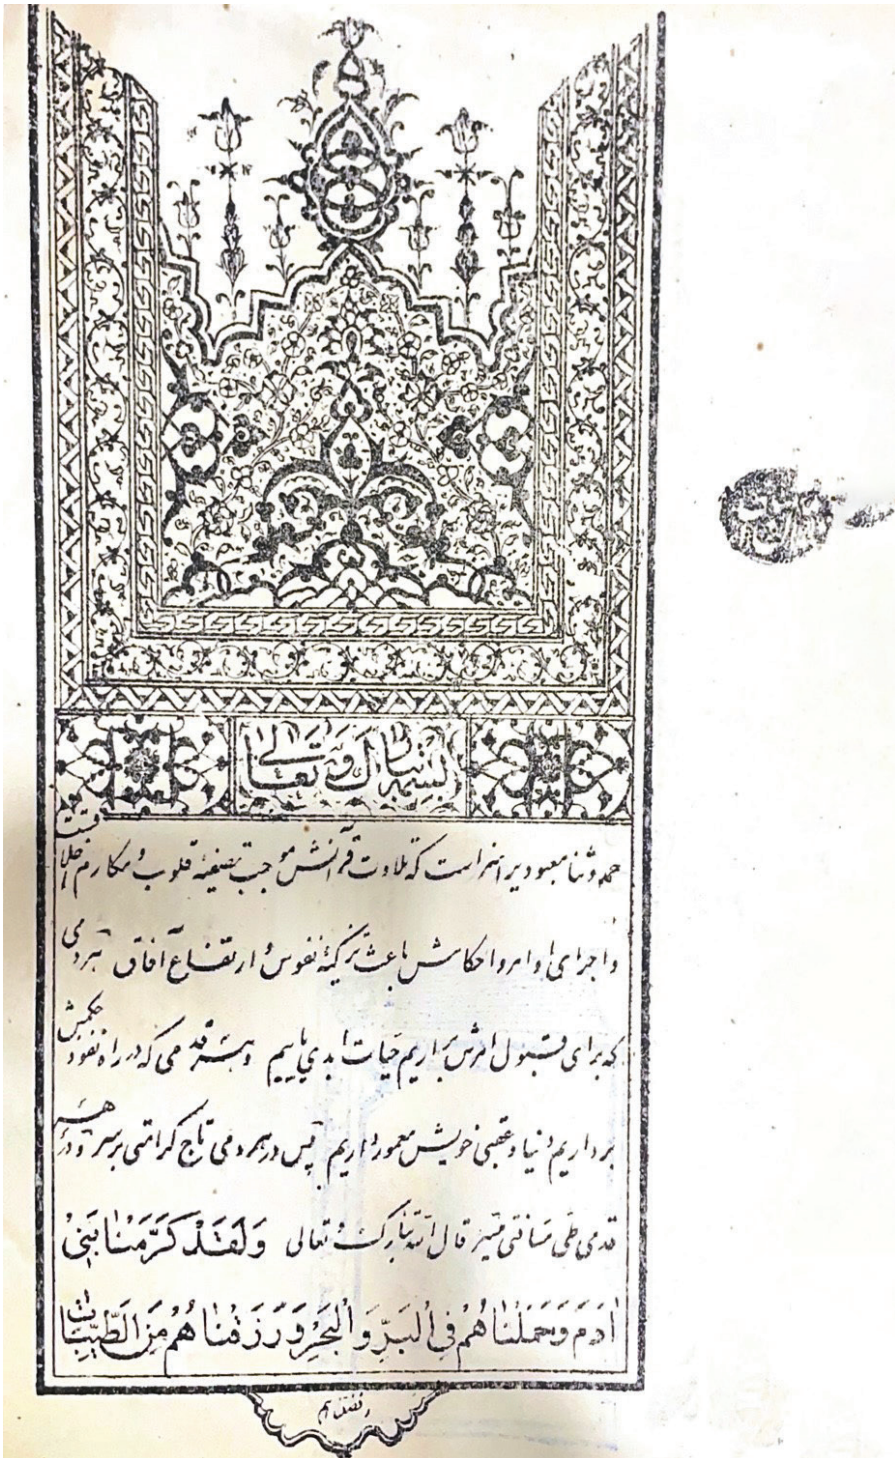 بسمه تبارک وتعالی
حمد و ثنا معبودیرا سزاست که تلاوت قرآنش موجب تصفیهٔ قلوب و مکارم اخلاق است
و اجرای اوامر و احکامش باعث تزکیهٔ نفوس و ارتفاع آفاق بهردمی
که برای قبول امرش براریم حیات ابدی یابیم و بهر قدمی که در راه نفوذ حکمش
برداریم دنیا و عقبی خویش معمور داریم پس در هر دمی تاج کرامتی بر سر و در هر
قدمی طی مسافتی میسر قال الله تبارک و تعالی وَلَقَدْ كَرَّمْنٰا بَنِيْ
اٰدَمَ وَحَمَلْنٰاهُمْ فِي الْبَرِّ وَالْبَحْرِ وَرَزَقْنٰاهُمْ مِنَ الطَّيِّبٰاتِ
وفضلناهم